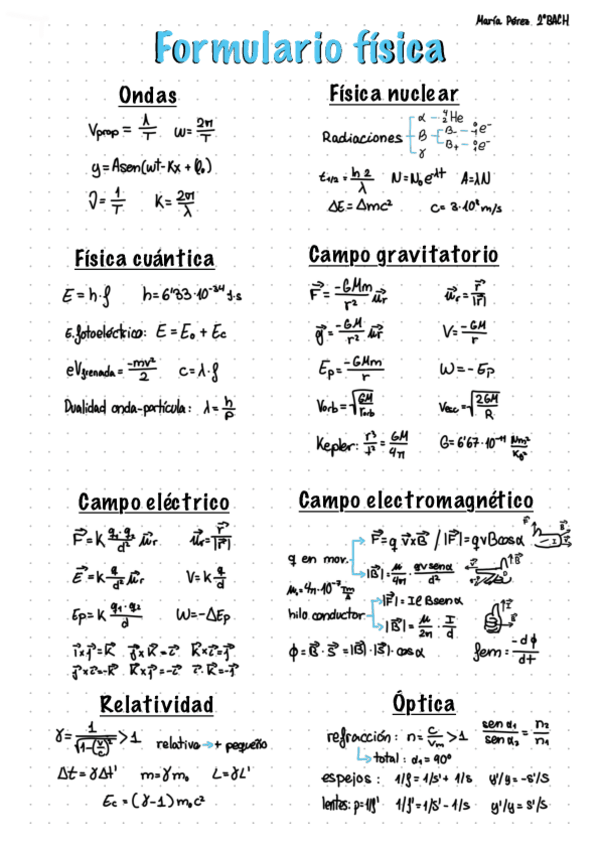 María Pérez 2ºBACH
Formulario física
Ondas
Vprop = λ/T   ω = 2π/T
y = Asen(ωt - Kx + φ₀)
ν = 1/T   K = 2π/λ
Física nuclear
Radiaciones
α — ⁴₂He
β — β₋ — ⁰₋₁e⁻
β₊ — ⁰₊₁e⁻
γ
t₁/₂ = ln 2/λ   N = N₀e^λt   A = λN
ΔE = Δmc²   c = 3·10⁸ m/s
Física cuántica
E = h·f   h = 6'33·10⁻³⁴ J·s
E.fotoeléctrico: E = E₀ + Ec
eVfrenada = -mv²/2   c = λ·f
Dualidad onda-partícula: λ = h/p
Campo gravitatorio
F⃗ = -GMm/r² u⃗r   u⃗r = r⃗/|r⃗|
g⃗ = -GM/r² u⃗r   V = -GM/r
Ep = -GMm/r   W = -Ep
Vorb = √(GM/rorb)   Vesc = √(2GM/R)
Kepler: r³/t² = GM/4π   G = 6'67·10⁻¹¹ Nm²/Kg²
Campo eléctrico
F⃗ = K q₁·q₂/d² u⃗r   u⃗r = r⃗/|r⃗|
E⃗ = K q/d² u⃗r   V = K q/d
Ep = K q₁·q₂/d   W = -ΔEp
i⃗×j⃗=K⃗   j⃗×K⃗=i⃗   K⃗×i⃗=j⃗
j⃗×i⃗=-K⃗   K⃗×j⃗=-i⃗   i⃗·K⃗=-j⃗
Campo electromagnético
F⃗ = q v⃗×B⃗ / |F⃗| = qvBcosα
q en mov.
|B⃗| = μ/4π · qv senα/d²
μ₀ = 4π·10⁻⁷ Tm/A
|F⃗| = Iℓ Bsenα
hilo conductor
|B⃗| = μ/2π · I/d
ϕ = B⃗·S⃗ = |B⃗|·|S⃗|·cosα   fem = -dϕ/dt
Relatividad
γ = 1/√(1-(v/c)²) > 1   relativo → + pequeño
Δt = γΔt'   m = γm₀   L = γL'
Ec = (γ-1)m₀c²
Óptica
refracción: n = c/vm > 1   sen α₁/sen α₂ = n₂/n₁
total: α₁ = 90º
espejos: 1/f = 1/s' + 1/s   y'/y = -s'/s
lentes: p=1/f'   1/f' = 1/s' - 1/s   y'/y = s'/s